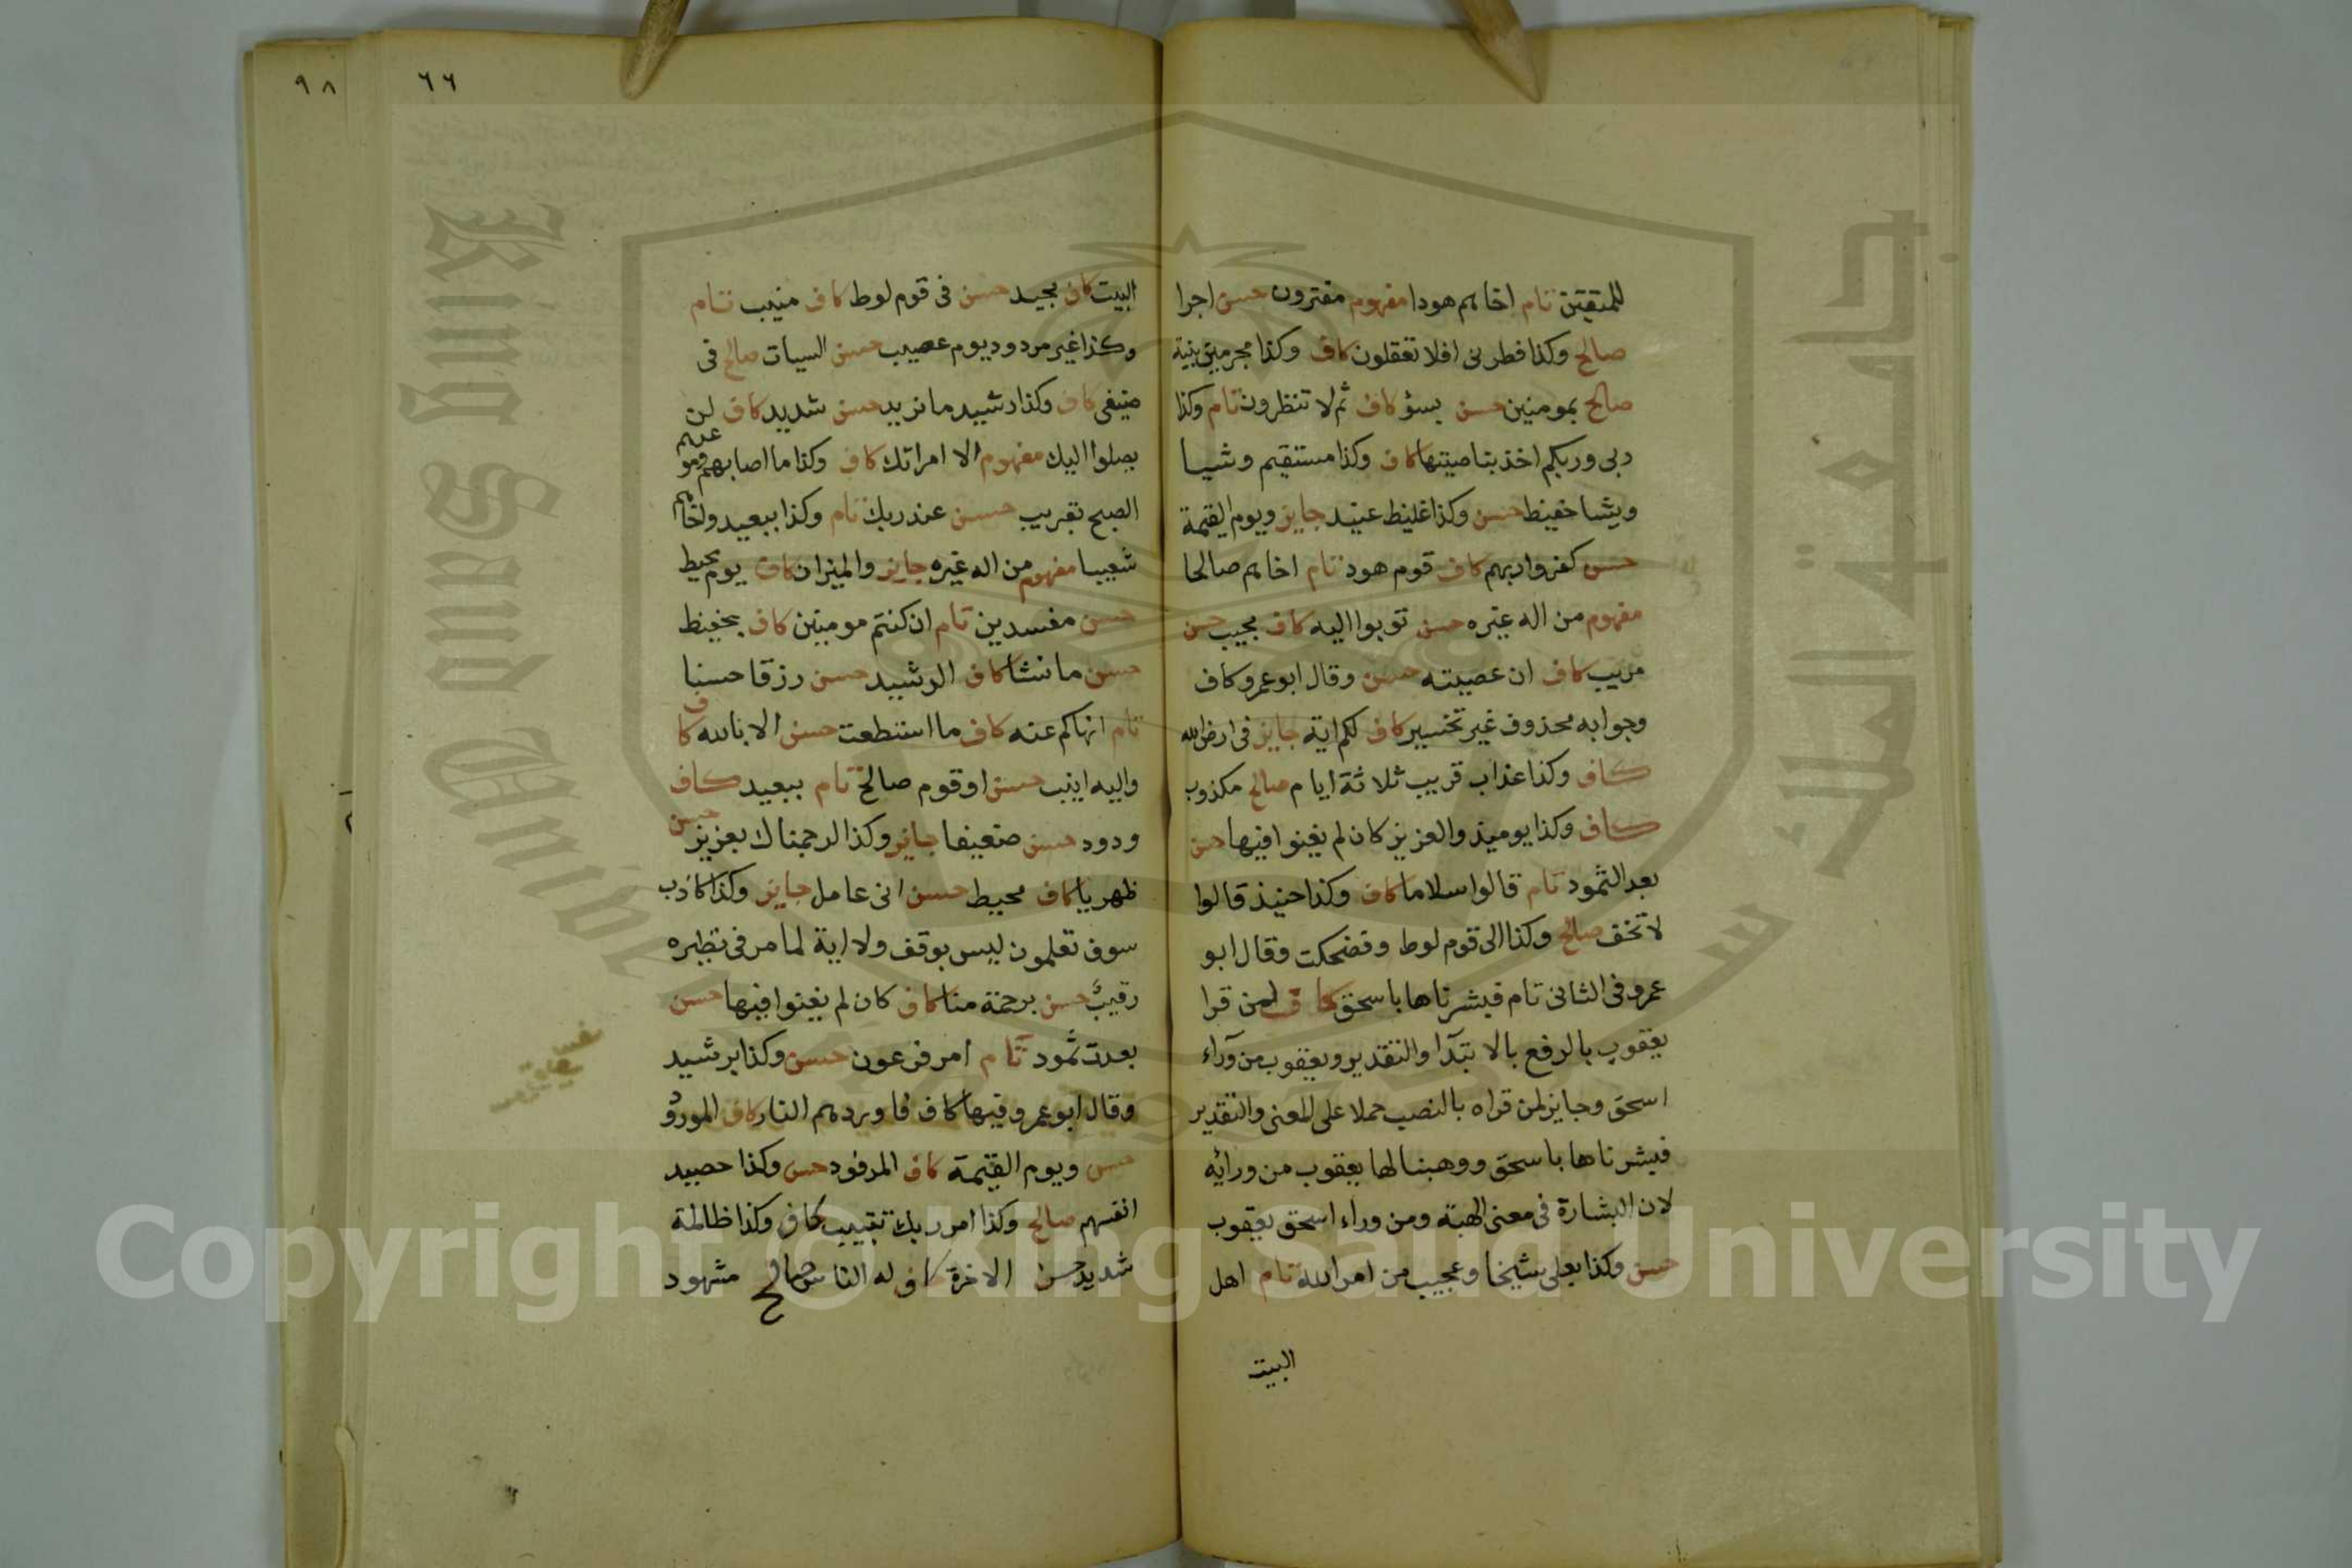 للمتقين تام اخاهم هودا مفهوم مفترون حسن اجرا
صالح وكذا فطرنى افلا تعقلون كاف وكذا مجرمين ببينة
صالح بمومنين حسن بسؤ كاف ثم لا تنظرون تام وكذا
ربى وربكم اخذ بناصيتها كاف وكذا مستقيم وشيا
ويشا حفيظ حسن وكذا غليظ عنيد جايز ويوم القيمة
حسن كفروا ربهم كاف قوم هود تام اخاهم صالحا
مفهوم من اله غيره حسن توبوا اليه كاف مجيب حسن
مريب كاف ان عصيته حسن وقال ابو عمرو كاف
وجوابه محذوف غير تخسير كاف لكم اية جايز فى ارض الله
كاف وكذا عذاب قريب ثلاثة ايام صالح مكذوب
كاف وكذا يوميذ والعزيز كان لم يغنوا فيها حسن
بعد الثمود تام قالوا سلاما كاف وكذا حنيذ قالوا
لا تخف صالح وكذا الى قوم لوط وفضحكت وقال ابو
عمرو فى الثانى تام فبشرناها باسحق كاف لمن قرا
يعقوب بالرفع بالابتدا والتقدير ويعقوب من وراء
اسحق وجايز لمن قراه بالنصب حملا على المعنى والتقدير
فبشرناها باسحق ووهبنا لها يعقوب من ورائه
لان البشارة فى معنى الهبة ومن وراء اسحق يعقوب
حسن وكذا بعلى شيخا وعجيب من امر الله تام اهل
البيت
٩٨
٦٦
البيت كاف مجيد حسن فى قوم لوط كاف منيب تام
وكذا غير مردود يوم عصيب حسن السيات صالح فى
ضيفى كاف وكذا رشيد ما نريد حسن شديد كاف لن
يصلوا اليك مفهوم الا امراتك كاف وكذا ما اصابهم وموعدهم
الصبح بقريب حسن عند ربك تام وكذا ببعيد واخاهم
شعيبا مفهوم من اله غيره جايز والميزان كاف يوم محيط
حسن مفسدين تام ان كنتم مومنين كاف بحفيظ
حسن ما نشا كاف الرشيد حسن رزقا حسنا
تام انهاكم عنه كاف ما استطعت حسن الا بالله كاف
واليه انيب حسن او قوم صالح تام ببعيد كاف
ودود حسن ضعيفا جايز وكذا لرجمناك بعزيز حسن
ظهريا كاف محيط حسن انى عامل جايز وكذا كاذب
سوف تعلمون ليس بوقف ولا اية لما مر فى نظيره
رقيب حسن برحمة منا كاف كان لم يغنوا فيها حسن
بعدت ثمود تام امر فرعون حسن وكذا برشيد
وقال ابو عمرو فيها كاف فاوردهم النار كاف المورود
حسن ويوم القيمة كاف المرفود حسن وكذا حصيد
انفسهم صالح وكذا امر ربك تتبيب كاف وكذا ظالمة
شديد حسن الاخرة كاف له الناس صالح مشهود
King Saud University
جامعة الملك سعود
1957
Copyright © King Saud University